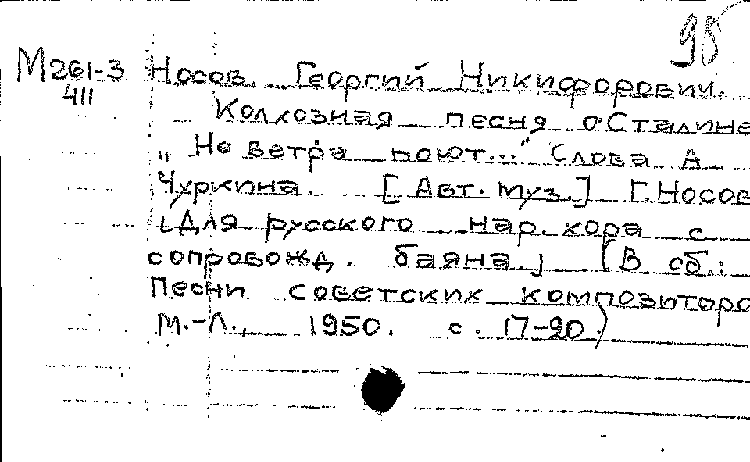 98
М261-3 Носов Георгий Никифорович.
411
Колхозная песня о Сталине
„Не ветра поют..." Слова А
Чуркина. [Авт. муз.] Г. Носов
(Для русского нар. хора с
сопровожд. баяна.) (В сб.:
Песни советских композиторо
М.-Л., 1950. с. 17-20.)